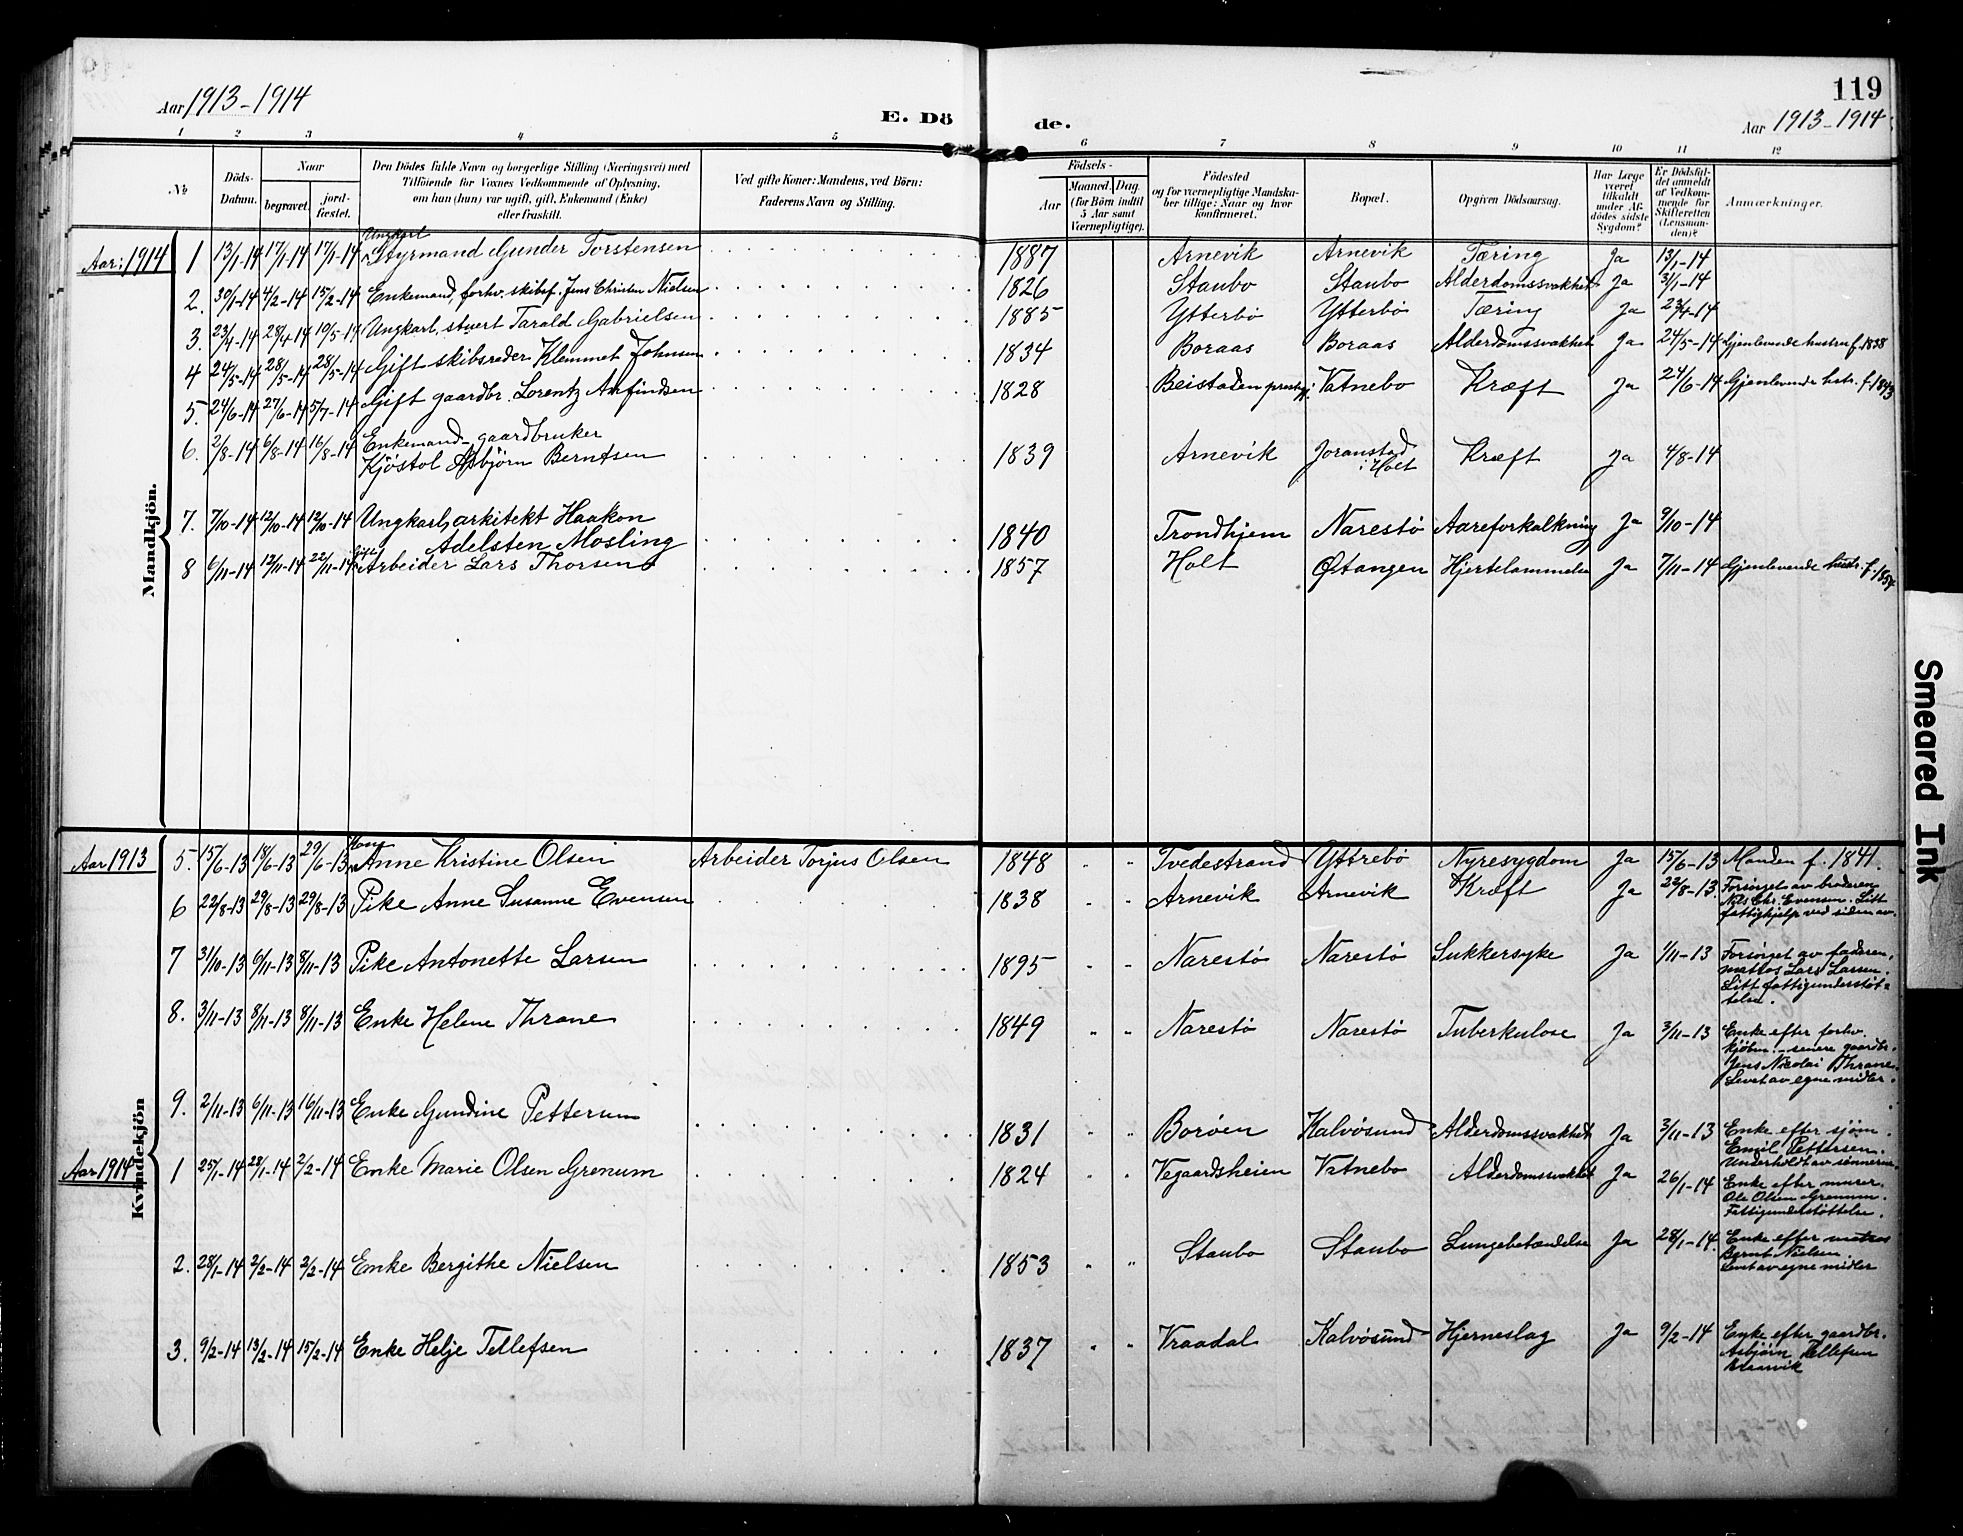 Aar 1913-1914
E. Dö
de.
119
Aar 1913-1914
1 2 3 4 5 6 7 8 9 10 11 12
№
Döds-Datum.
Naar
begravet.
jord-fæstet.
Den Dödes fulde Navn og borgerlige Stilling (Næringsvei) med
Tilföiende for Voxnes Vedkommende af Oplysning,
om han (hun) var ugift, gift, Enkemand (Enke)
eller fraskilt.
Ved gifte Koner: Mandens, ved Börn:
Faderens Navn og Stilling.
Födsels-
Aar
Maaned. Dag.
(for Börn indtil
5 Aar samt
Værnepligtige).
Födested
og for værnepligtige Mandska-
ber tillige: Naar og hvor
konfirmeret.
Bopæl.
Opgiven Dödsaarsag.
Har Læge
været
tilkaldt
under Af-
dödes sidste
Sygdom?
Er Dödsfal-
det anmeldt
af Vedkom-
mende for
Skifteretten
(Lensman-
den)?
Anmærkninger.
Mandkjön.
Aar: 1914 1 13/1-14 17/1-14 17/1-14 Ungkarl Styrmand Gunder Torstensen 1887 Arnevik Arnevik Tæring Ja 13/1-14
2. 30/1-14 4/2-14 15/2-14 Enkemand, forhv. skibsf. Jens Christen Nielsen 1826 Staubo Staubo Alderdomssvakhet Ja 31/1-14
3. 23/4-14 28/4-14 10/5-14 Ungkarl, stuert Tarald Gabrielsen 1885 Ytterbö Ytterbö Tæring Ja 23/4-14
4 24/5-14 28/5-14 28/5-14 Gift skibsreder Klemmet Johnsen 1834 Boraas Boraas Alderdomssvakhet Ja 24/5-14 Gjenlevende hustru f. 1838
5. 24/6-14 27/6-14 5/7-14 Gift gaardbr. Lorentz Anfindsen 1828 Beistaden prestegj. Vatnebo Kræft Ja 24/6-14 Gjenlevende hstr. f. 1843
6. 2/8-14 6/8-14 16/8-14 Enkemand - gaardbruker
Kjöstol Asbjörn Berntsen 1839 Arnevik Joranstad i Holt Kræft Ja 4/8-14
7. 7/10-14 12/10-14 12/10-14 Ungkarl, arkitekt Haakon
Adelsten Mosling 1840 Trondhjem Narestö Aareforkalkning Ja 9/10-14
8 6/11-14 12/11-14 22/11-14 Gift Arbeider Lars Thorsen 1857 Holt Östangen Hjertelammelse Ja 7/11-14 Gjenlevende hustr. f. 1854
Kvindekjön
Aar 1913 5. 15/6-13 18/6-13 29/6-13 Kone Anne Kristine Olsen Arbeider Torjus Olsen 1848 Tvedestrand Yttrebö Nyresygdom Ja 15/6-13 Manden f. 1841.
6 22/8-13 29/8-13 29/8-13 Pike Anne Susanne Evensen 1838 Arnevik Arnevik Kræft Ja 22/8-13. Forsörget av broderen
Nils Chr. Evensen. Litt
fattighjelp ved siden av.
7 31/10-13 6/11-13 8/11-13 Pike Antonette Larsen 1895 Narestö Narestö Sukkersyke Ja 1/11-13 Forsörget av faderen,
matros Lars Larsen.
Litt fattigunderstöt-
telse.
8. 3/11-13 8/11-13 8/11-13 Enke Helene Thrane 1849 Narestö Narestö Tuberkulose Ja 3/11-13 Enke efter forhv.
kjöbm. - senere gaardbr.
Jens Nicolai Thrane.
Levet av egne midler.
9. 2/11-13 6/11-13 16/11-13 Enke Gundine Pettersen 1831 Boröen Kalvösund Alderdomssvakhet Ja 3/11-13 Enke efter sjöm.
Emil Pettersen.
Underholdt av sönnerne.
Aar 1914 1 25/1-14 28/1-14 2/2-14 Enke Marie Olsen Grenum 1824 Vegaardsheien Vatnebo Alderdomssvakhet Ja 26/1-14 Enke efter murer.
Ole Olsen Grenum.
Fattigunderstöttelse.
2. 28/1-14 2/2-14 2/2-14 Enke Bergithe Nielsen 1853 Staubo Staubo Lungebetændelse Ja 28/1-14. Enke efter matros
Bernt Nielsen.
Levet av egne midler
3. 9/2-14 13/2-14 15/2-14 Enke Helje Tellefsen 1837 Vraadal Kalvösund Hjerneslag Ja 9/2-14 Enke efter gaardbr.
Asbjörn Tellefsen
Smeared Ink